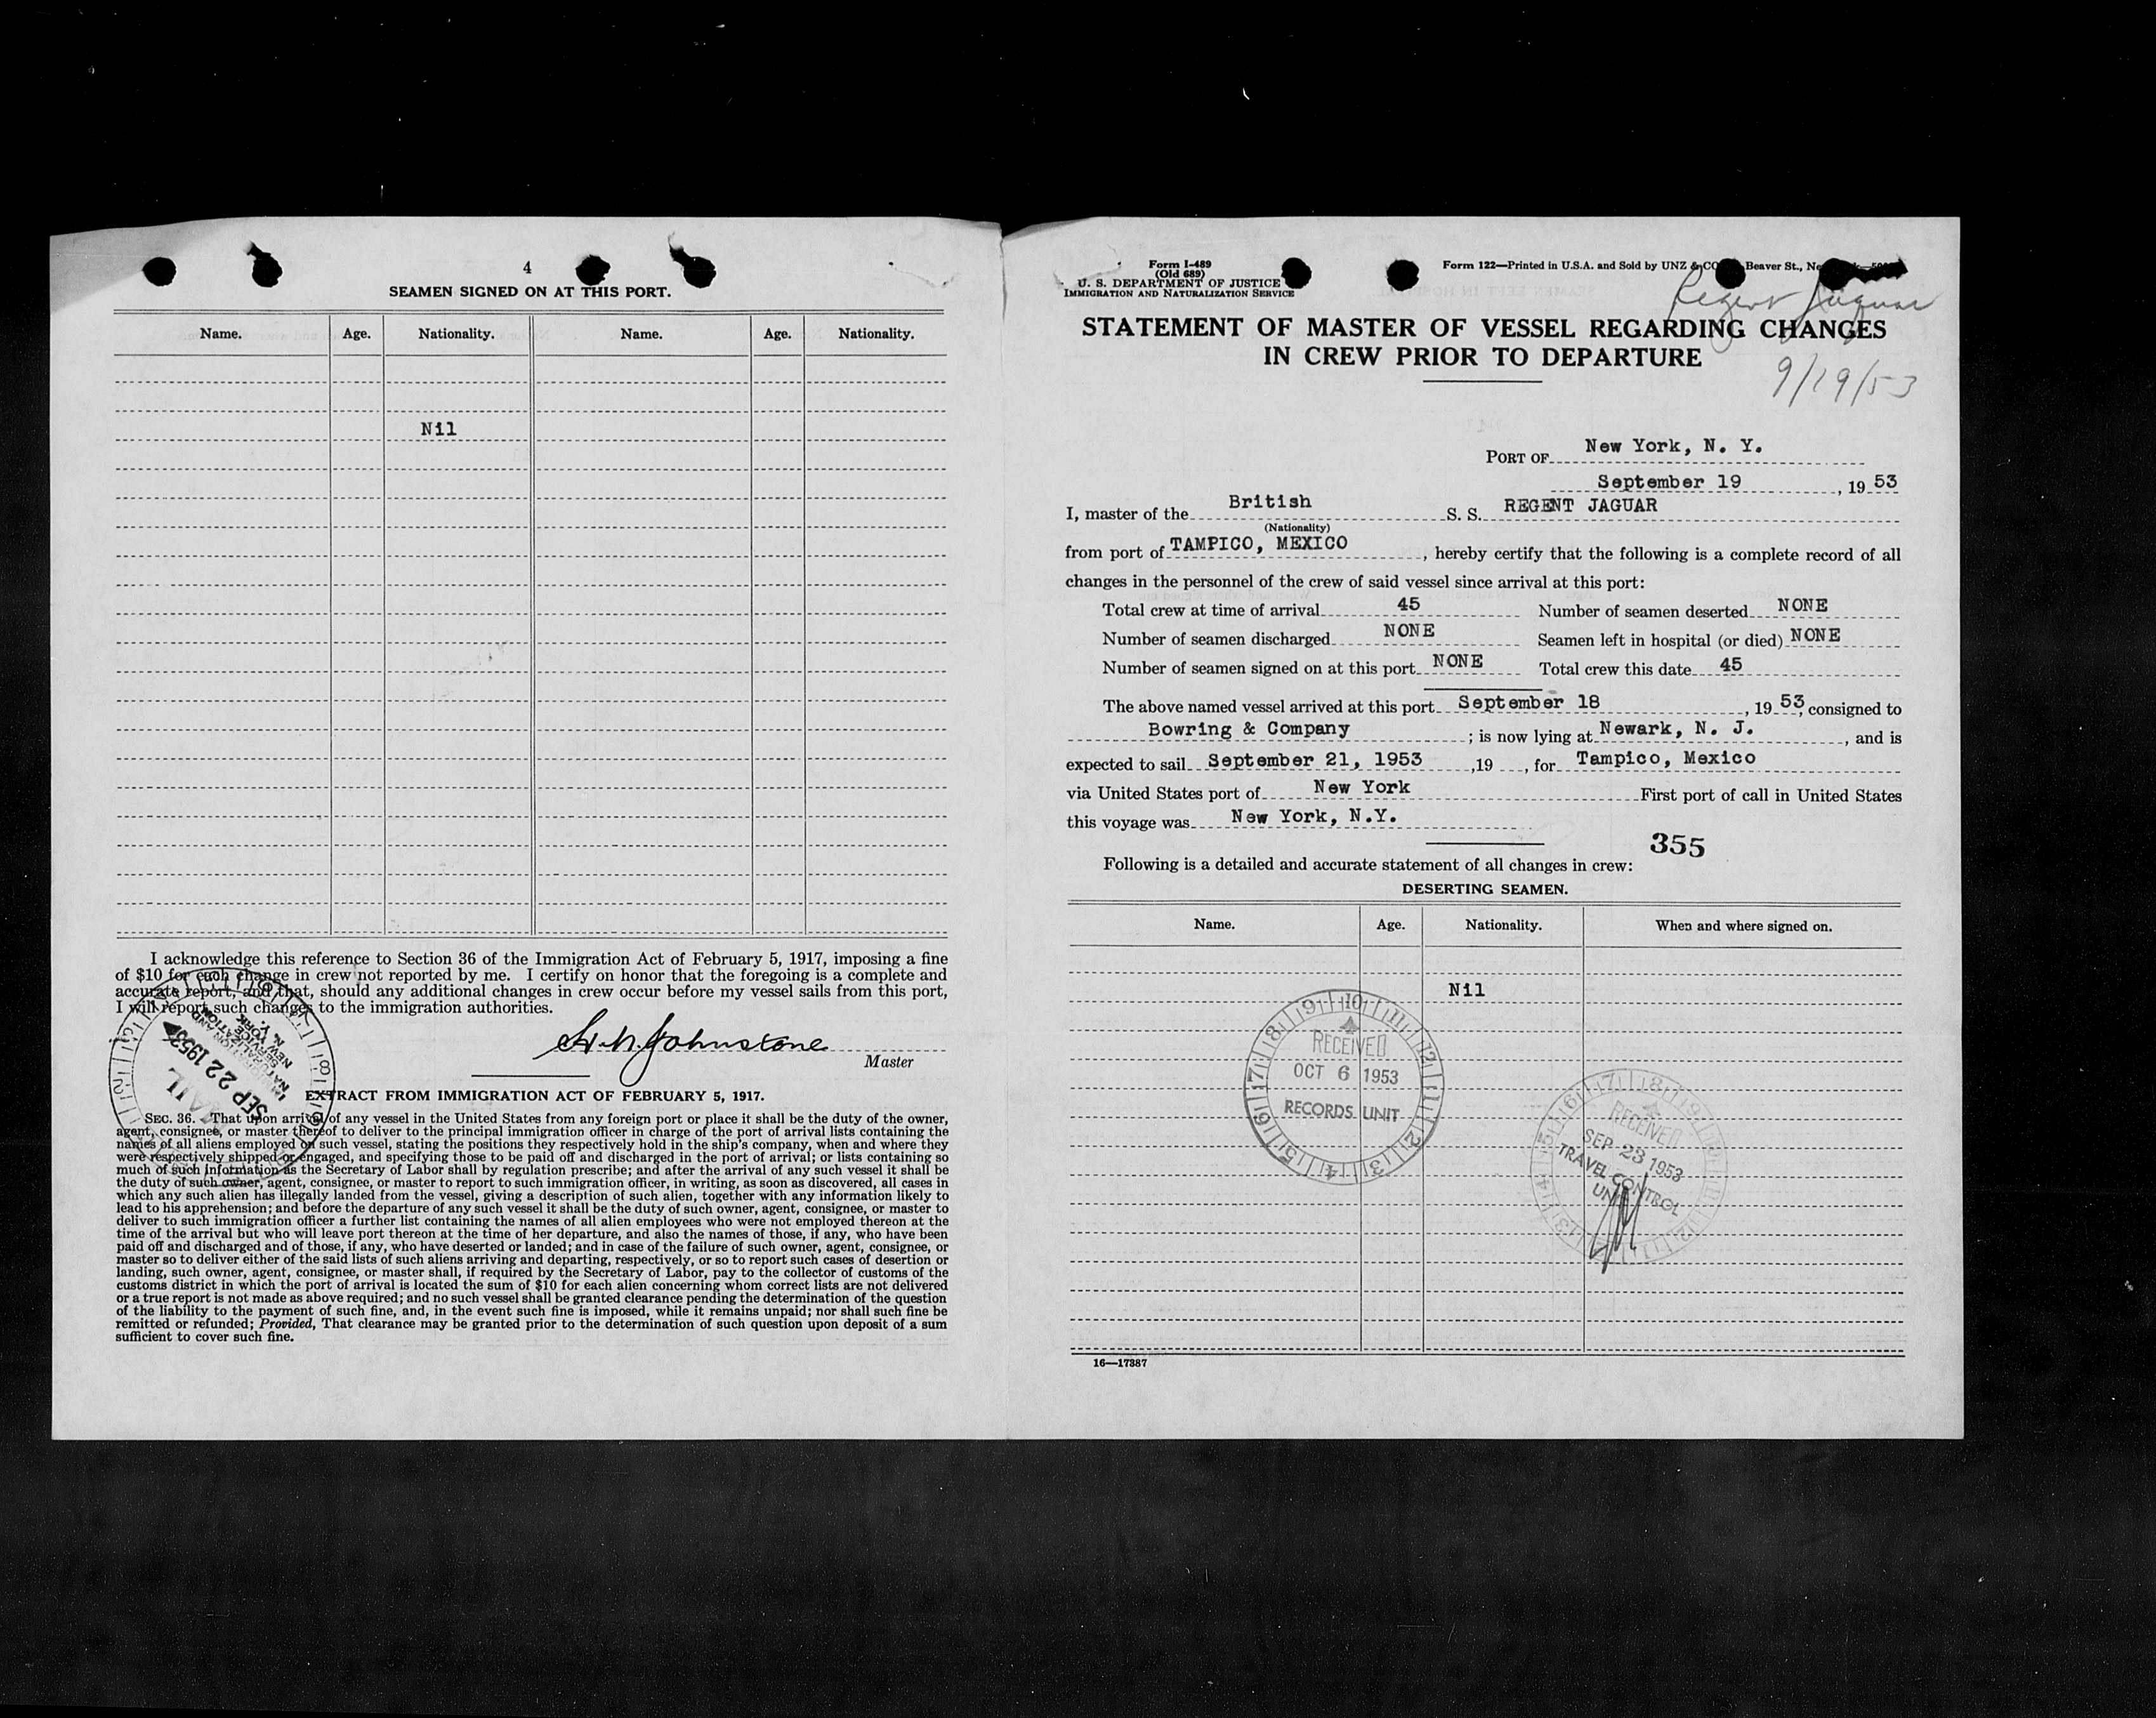 4
SEAMEN SIGNED ON AT THIS PORT.
Name. Age. Nationality. Name. Age. Nationality.
Nil
I acknowledge this reference to Section 36 of the Immigration Act of February 5, 1917, imposing a fine
of $10 for each change in crew not reported by me. I certify on honor that the foregoing is a complete and
accurate report, and that, should any additional changes in crew occur before my vessel sails from this port,
I will report such changes to the immigration authorities.
Johnstone
Master
SEP 22 1953
MAIL
EXTRACT FROM IMMIGRATION ACT OF FEBRUARY 5, 1917.
SEC. 36. That upon arrival of any vessel in the United States from any foreign port or place it shall be the duty of the owner,
agent, consignee, or master thereof to deliver to the principal immigration officer in charge of the port of arrival lists containing the
names of all aliens employed on such vessel, stating the positions they respectively hold in the ship's company, when and where they
were respectively shipped or engaged, and specifying those to be paid off and discharged in the port of arrival; or lists containing so
much of such information as the Secretary of Labor shall by regulation prescribe; and after the arrival of any such vessel it shall be
the duty of such owner, agent, consignee, or master to report to such immigration officer, in writing, as soon as discovered, all cases in
which any such alien has illegally landed from the vessel, giving a description of such alien, together with any information likely to
lead to his apprehension; and before the departure of any such vessel it shall be the duty of such owner, agent, consignee, or master to
deliver to such immigration officer a further list containing the names of all alien employees who were not employed thereon at the
time of the arrival but who will leave port thereon at the time of her departure, and also the names of those, if any, who have been
paid off and discharged and of those, if any, who have deserted or landed; and in case of the failure of such owner, agent, consignee, or
master so to deliver either of the said lists of such aliens arriving and departing, respectively, or so to report such cases of desertion or
landing, such owner, agent, consignee, or master shall, if required by the Secretary of Labor, pay to the collector of customs of the
customs district in which the port of arrival is located the sum of $10 for each alien concerning whom correct lists are not delivered
or a true report is not made as above required; and no such vessel shall be granted clearance pending the determination of the question
of the liability to the payment of such fine, and, in the event such fine is imposed, while it remains unpaid; nor shall such fine be
remitted or refunded; Provided, That clearance may be granted prior to the determination of such question upon deposit of a sum
sufficient to cover such fine.
Form I-489
(Old 689)
U. S. DEPARTMENT OF JUSTICE
IMMIGRATION AND NATURALIZATION SERVICE
Form 122—Printed in U.S.A. and Sold by UNZ & CO Beaver St.,
Regent Jaguar
STATEMENT OF MASTER OF VESSEL REGARDING CHANGES
IN CREW PRIOR TO DEPARTURE
9/19/53
PORT OF New York, N. Y.
September 19, 19 53
I, master of the British S. S. REGENT JAGUAR
(Nationality)
from port of TAMPICO, MEXICO, hereby certify that the following is a complete record of all
changes in the personnel of the crew of said vessel since arrival at this port:
Total crew at time of arrival 45 Number of seamen deserted NONE
Number of seamen discharged NONE Seamen left in hospital (or died) NONE
Number of seamen signed on at this port NONE Total crew this date 45
The above named vessel arrived at this port September 18, 19 53, consigned to
Bowring & Company; is now lying at Newark, N. J., and is
expected to sail September 21, 1953, 19 , for Tampico, Mexico
via United States port of New York First port of call in United States
this voyage was New York, N.Y.
355
Following is a detailed and accurate statement of all changes in crew:
DESERTING SEAMEN.
Name. Age. Nationality. When and where signed on.
Nil
RECEIVED
OCT 6 1953
RECORDS UNIT
RECEIVED
SEP 23 1953
TRAVEL CONTROL
UNIT
16—17387